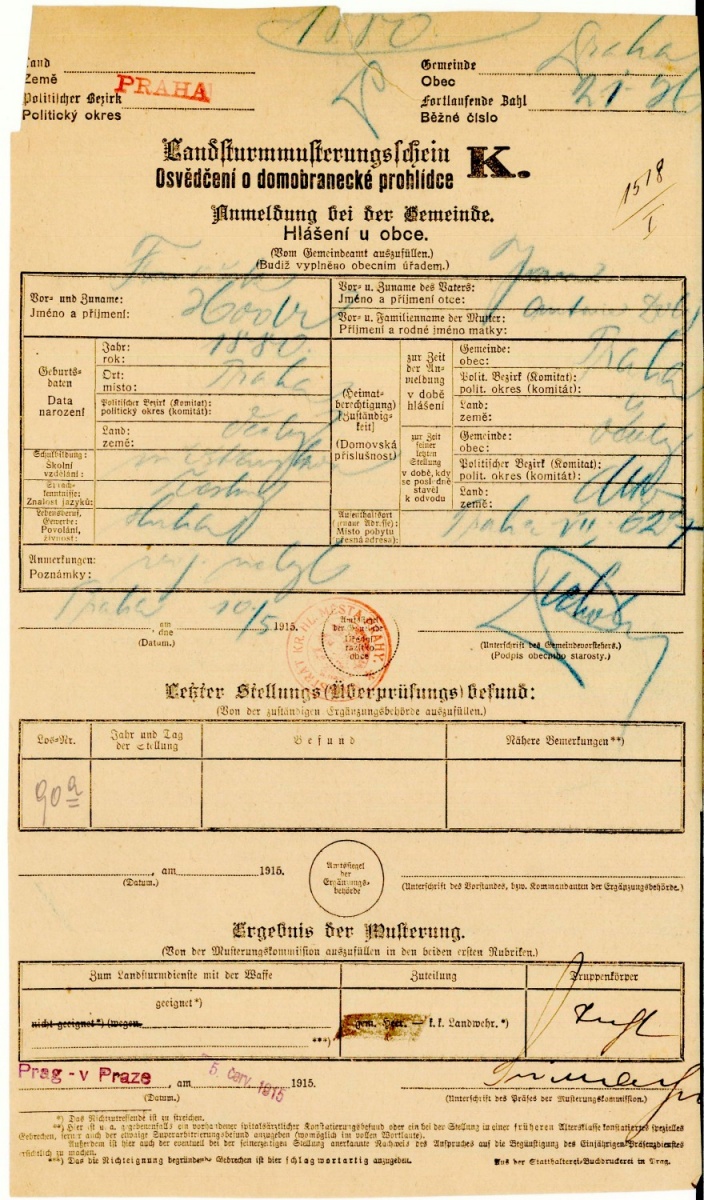 1880
Land
Země
Gemeinde Praha
Obec
PRAHA
Politischer Bezirk
Politický okres
Fortlaufende Zahl
Běžné číslo
Landsturmmusterungsschein K.
Osvědčení o domobranecké prohlídce
1518
I
Anmeldung bei der Gemeinde.
Hlášení u obce.
(Vom Gemeindeamt auszufüllen.)
(Budiž vyplněno obecním úřadem.)
Vor- und Zuname:
Jméno a příjmení:
Vor- u. Zuname des Vaters:
Jméno a příjmení otce:
Vor- u. Familienname der Mutter:
Příjmení a rodné jméno matky:
Geburts-
daten
Data
narození
Jahr: 1880
rok:
Ort: Praha
místo:
Politischer Bezirk (Komitat):
politický okres (komitát):
Land:
země:
(Heimat-
berechtigung)
(Zuständig-
keit)
(Domovská
příslušnost)
zur Zeit
der An-
meldung
v době
hlášení
Gemeinde: Praha
obec:
Polit. Bezirk (Komitat):
polit. okres (komitát):
Land:
země:
zur Zeit
seiner
letzten
Stellung
v době, kdy
se posledně
stavěl
k odvodu
Gemeinde:
obec:
Politischer Bezirk (Komitat):
polit. okres (komitát):
Land:
země:
Schulbildung:
Školní
vzdělání:
Sprach-
kenntnisse:
Znalost jazyků:
Lebensberuf,
Gewerbe:
Povolání,
živnost:
Aufenthaltsort
(genaue Adresse):
Místo pobytu
(přesná adresa):
Praha VII,
Anmerkungen:
Poznámky:
Praha am 10/5 1915.
dne
(Datum.)
Amtssiegel
der Gemeinde
Úřední
razítko
obce
(Unterschrift des Gemeindevorstehers.)
(Podpis obecního starosty.)
Letzter Stellungs(Überprüfungs)befund:
(Von der zuständigen Ergänzungsbehörde auszufüllen.)
Los-Nr.
Jahr und Tag
der Stellung
Befund
Nähere Bemerkungen**)
90a
, am 1915.
(Datum.)
Amtssiegel
der
Ergänzungs-
behörde
(Unterschrift des Vorstandes, bzw. Kommandanten der Ergänzungsbehörde.)
Ergebnis der Musterung.
(Von der Musterungskommission auszufüllen in den beiden ersten Rubriken.)
Zum Landsturmdienste mit der Waffe
Zuteilung
Truppenkörper
geeignet*)
nicht geeignet*) (wegen
***)
gem. Heer. — k. k. Landwehr.*)
Prag - v Praze, am 5. červ. 1915 1915.
(Datum.)
(Unterschrift des Präses der Musterungskommission.)
*) Das Nichtzutreffende ist zu streichen.
**) Hier ist u. a. gegebenenfalls ein vorhandener spitalsärztlicher Konstatierungsbefund oder ein bei der Stellung in einer früheren Altersklasse konstatiertes spezielles
Gebrechen, ferner auch der etwaige Superarbitrierungsbefund anzugeben (womöglich im vollen Wortlaute).
Außerdem ist hier auch der eventuell bei der seinerzeitigen Stellung anerkannte Nachweis des Anspruches auf die Begünstigung des Einjährigen-Präsenzdienstes
ersichtlich zu machen.
***) Das die Nichteignung begründende Gebrechen ist hier schlagwortartig anzugeben.
Aus der Statthalterei-Buchdruckerei in Prag.